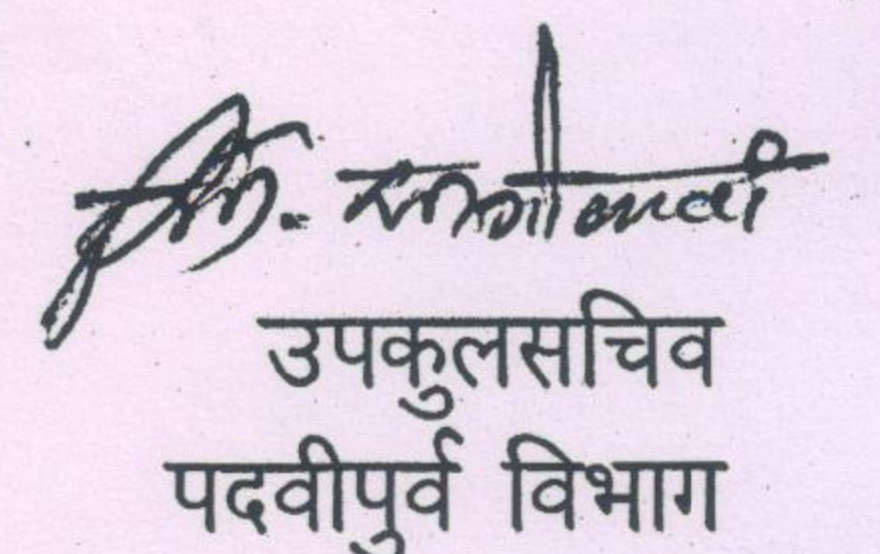 उपकुलसचिव
पदवीपुर्व विभाग